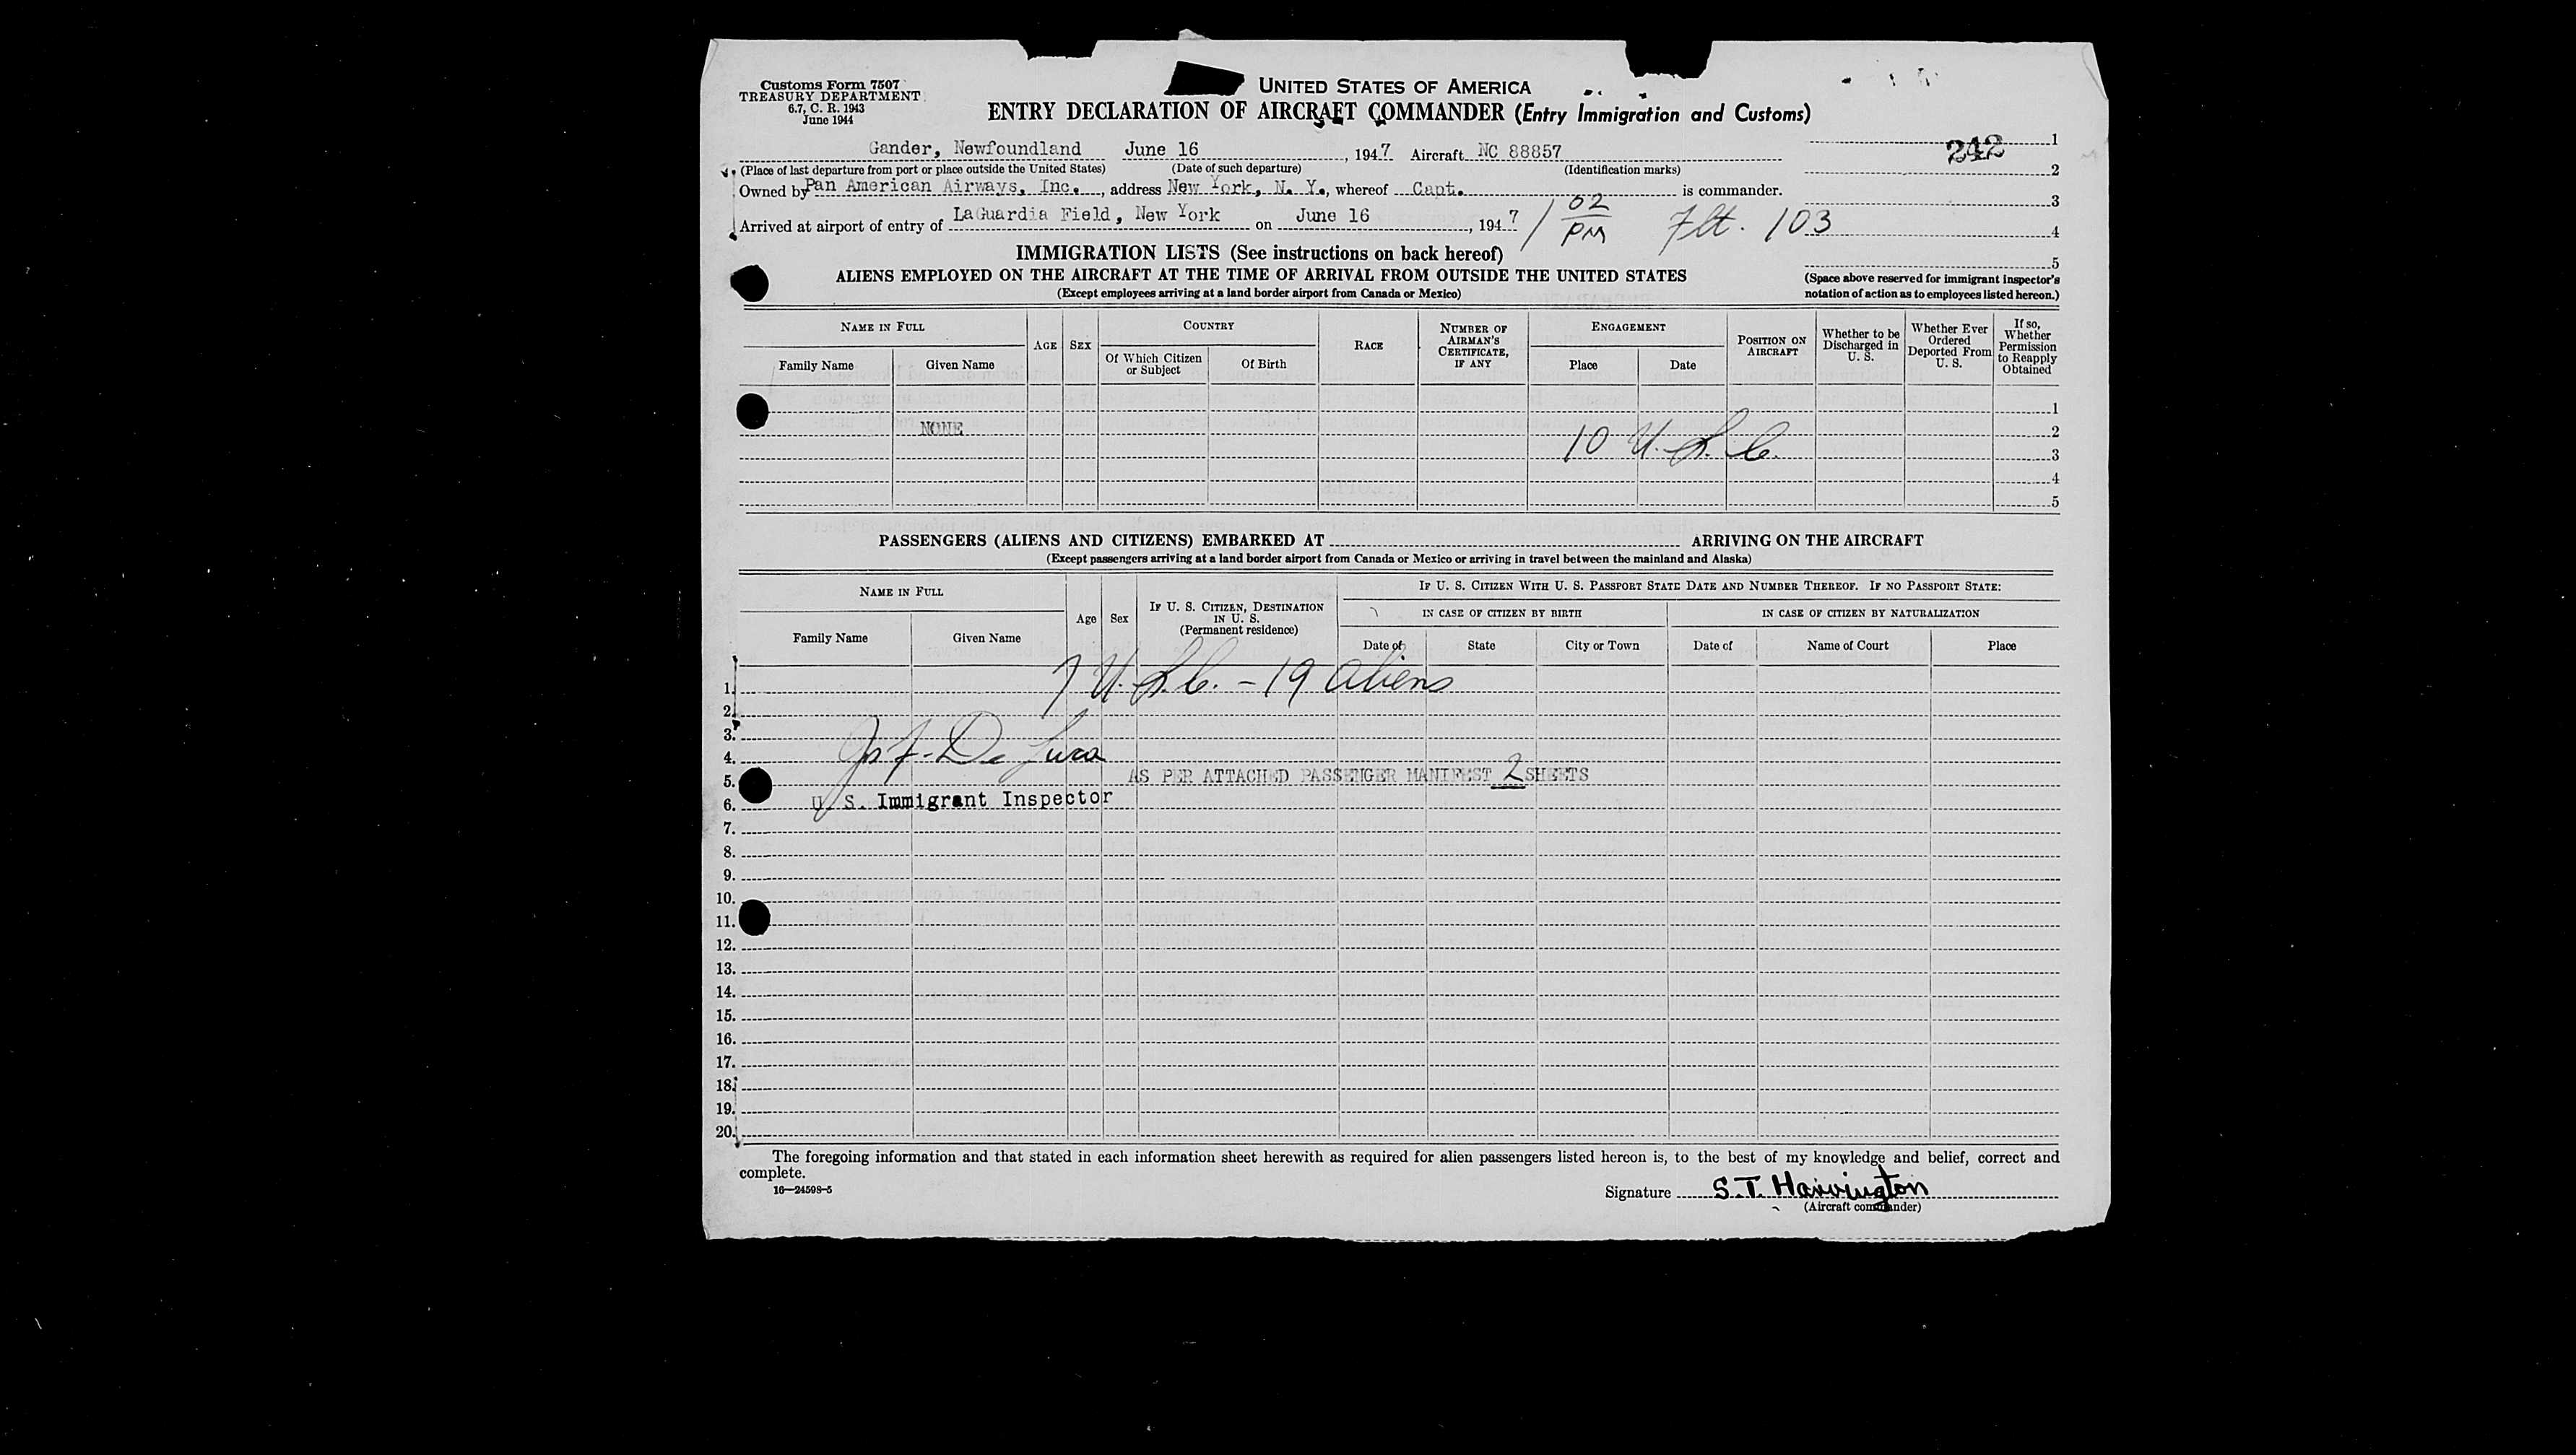 Customs Form 7507
TREASURY DEPARTMENT
6.7, C. R. 1943
June 1944
UNITED STATES OF AMERICA
ENTRY DECLARATION OF AIRCRAFT COMMANDER (Entry Immigration and Customs)
Gander, Newfoundland June 16, 1947 Aircraft NC 88857
(Place of last departure from port or place outside the United States) (Date of such departure) (Identification marks)
Owned by Pan American Airways, Inc., address New York, N. Y., whereof Capt. is commander.
Arrived at airport of entry of LaGuardia Field, New York on June 16, 1947 1 02 PM Flt. 103
242
1
2
3
4
5
(Space above reserved for immigrant inspector's
notation of action as to employees listed hereon.)
IMMIGRATION LISTS (See instructions on back hereof)
ALIENS EMPLOYED ON THE AIRCRAFT AT THE TIME OF ARRIVAL FROM OUTSIDE THE UNITED STATES
(Except employees arriving at a land border airport from Canada or Mexico)
NAME IN FULL
Family Name
Given Name
AGE
SEX
COUNTRY
Of Which Citizen or Subject
Of Birth
RACE
NUMBER OF AIRMAN'S CERTIFICATE, IF ANY
ENGAGEMENT
Place
Date
POSITION ON AIRCRAFT
Whether to be Discharged in U. S.
Whether Ever Ordered Deported From U. S.
If so, Whether Permission to Reapply Obtained
1
NONE 2
10 U.S.C. 3
4
5
PASSENGERS (ALIENS AND CITIZENS) EMBARKED AT ARRIVING ON THE AIRCRAFT
(Except passengers arriving at a land border airport from Canada or Mexico or arriving in travel between the mainland and Alaska)
NAME IN FULL
Family Name
Given Name
Age
Sex
IF U. S. CITIZEN, DESTINATION IN U. S. (Permanent residence)
IF U. S. CITIZEN WITH U. S. PASSPORT STATE DATE AND NUMBER THEREOF. IF NO PASSPORT STATE:
IN CASE OF CITIZEN BY BIRTH
IN CASE OF CITIZEN BY NATURALIZATION
Date of
State
City or Town
Date of
Name of Court
Place
1. 7 U.S.C. - 19 Aliens
2.
3.
4. De Luca
5. AS PER ATTACHED PASSENGER MANIFEST 2 SHEETS
6. U. S. Immigrant Inspector
7.
8.
9.
10.
11.
12.
13.
14.
15.
16.
17.
18.
19.
20.
The foregoing information and that stated in each information sheet herewith as required for alien passengers listed hereon is, to the best of my knowledge and belief, correct and
complete.
16—24598-5
Signature S.T. Harrington
(Aircraft commander)